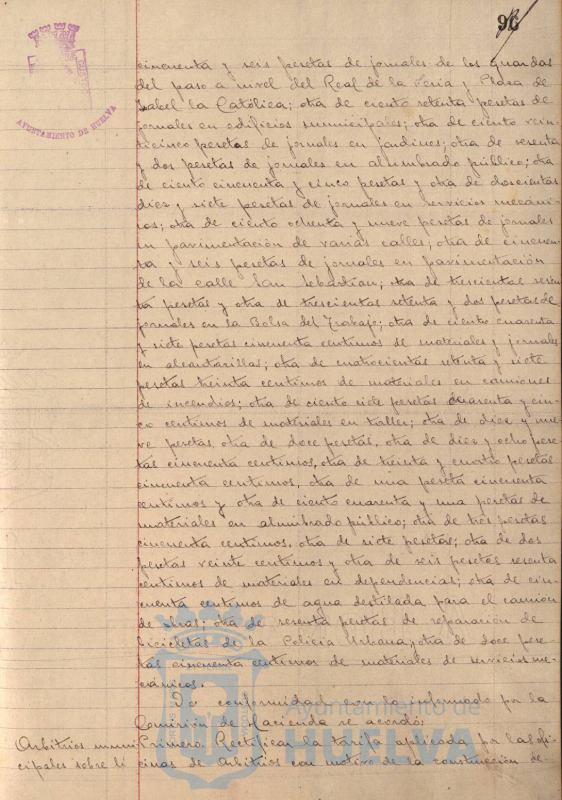 96
AYUNTAMIENTO DE HUELVA
cincuenta y seis pesetas de jornales de los guardas
del paso a nivel del Real de la Feria y Plaza de
Isabel la Católica; otra de ciento setenta pesetas de
jornales en edificios municipales; otra de ciento vein-
ticinco pesetas de jornales en jardines; otra de sesenta
y dos pesetas de jornales en alumbrado público; otra
de ciento cincuenta y cinco pesetas y otra de doscientas
diez y siete pesetas de jornales en servicios mecáni-
cos; otra de ciento ochenta y nueve pesetas de jornales
en pavimentación de varias calles; otra de cincuen-
ta y seis pesetas de jornales en pavimentación
de la calle San Sebastián; otra de trescientas sesen-
ta pesetas y otra de trescientas setenta y dos pesetas de
jornales en la Bolsa del Trabajo; otra de ciento cuarenta
y siete pesetas cincuenta centimos de materiales y jornales
en alcantarillas; otra de cuatrocientas setenta y siete
pesetas treinta centimos de materiales en camiones
de incendios; otra de ciento siete pesetas cuarenta y cin-
co centimos de materiales en taller; otra de diez y nue-
ve pesetas, otra de doce pesetas, otra de diez y ocho pese-
tas cincuenta centimos, otra de treinta y cuatro pesetas
cincuenta centimos, otra de una peseta cincuenta
centimos y otra de ciento cuarenta y una pesetas de
materiales en alumbrado público; otra de tres pesetas
cincuenta centimos, otra de siete pesetas; otra de dos
pesetas veinte centimos y otra de seis pesetas sesenta
centimos de materiales en dependencias; otra de cin-
cuenta centimos de agua destilada para el camión
de obras; otra de sesenta pesetas de reparación de
bicicletas de la Policía Urbana, otra de doce pese-
tas cincuenta centimos de materiales de servicios me-
cánicos.
De conformidad con lo informado por la
Comisión de Hacienda se acordó:
Arbitrios muni
cipales sobre li
Primero. Rectificar la tarifa aplicada por las ofi-
cinas de Arbitrios con motivo de la construcción de-
Ayuntamiento de
HUELVA